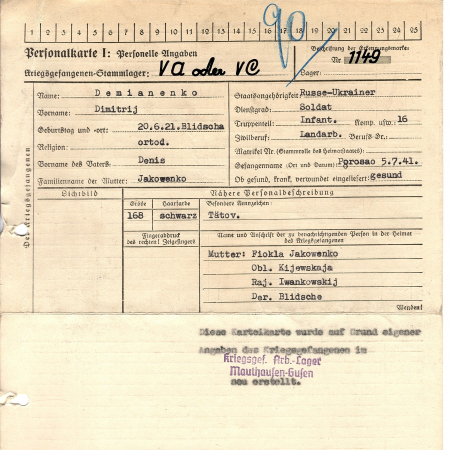 1 2 3 4 5 6 7 8 9 10 11 12 13 14 15 16 17 18 19 20 21 22 23 24 25
90
Personalkarte I: Personelle Angaben
Beschriftung der Erkennungsmarke:
Nr. 1149
Kriegsgefangenen-Stammlager: V A oder V C
Lager:
Des Kriegsgefangenen
Name: Demianenko
Vorname: Dimitrij
Geburtstag und -ort: 20.6.21.Blidscha
Religion: ortod.
Vorname des Vaters: Denis
Familienname der Mutter: Jakowenko
Staatsangehörigkeit: Russe-Ukrainer
Dienstgrad: Soldat
Truppenteil: Infant. Komp. usw.: 16
Zivilberuf: Landarb. Berufs-Gr.:
Matrikel Nr. (Stammrolle des Heimatstaates):
Gefangennahme (Ort und Datum): Porosao 5.7.41.
Ob gesund, krank, verwundet eingeliefert: gesund
Lichtbild
Nähere Personalbeschreibung
Größe Haarfarbe Besondere Kennzeichen:
168 schwarz Tätov.
Fingerabdruck
des rechten! Zeigefingers
Name und Anschrift der zu benachrichtigenden Person in der Heimat
des Kriegsgefangenen
Mutter: Fiokla Jakowenko
Obl. Kijewskaja
Raj. Iwankowskij
Der. Blidsche
Wenden!
Diese Karteikarte wurde auf Grund eigener
Angaben des Kriegsgefangenen im
Kriegsgef. Arb.-Lager
Mauthausen-Gusen
neu erstellt.